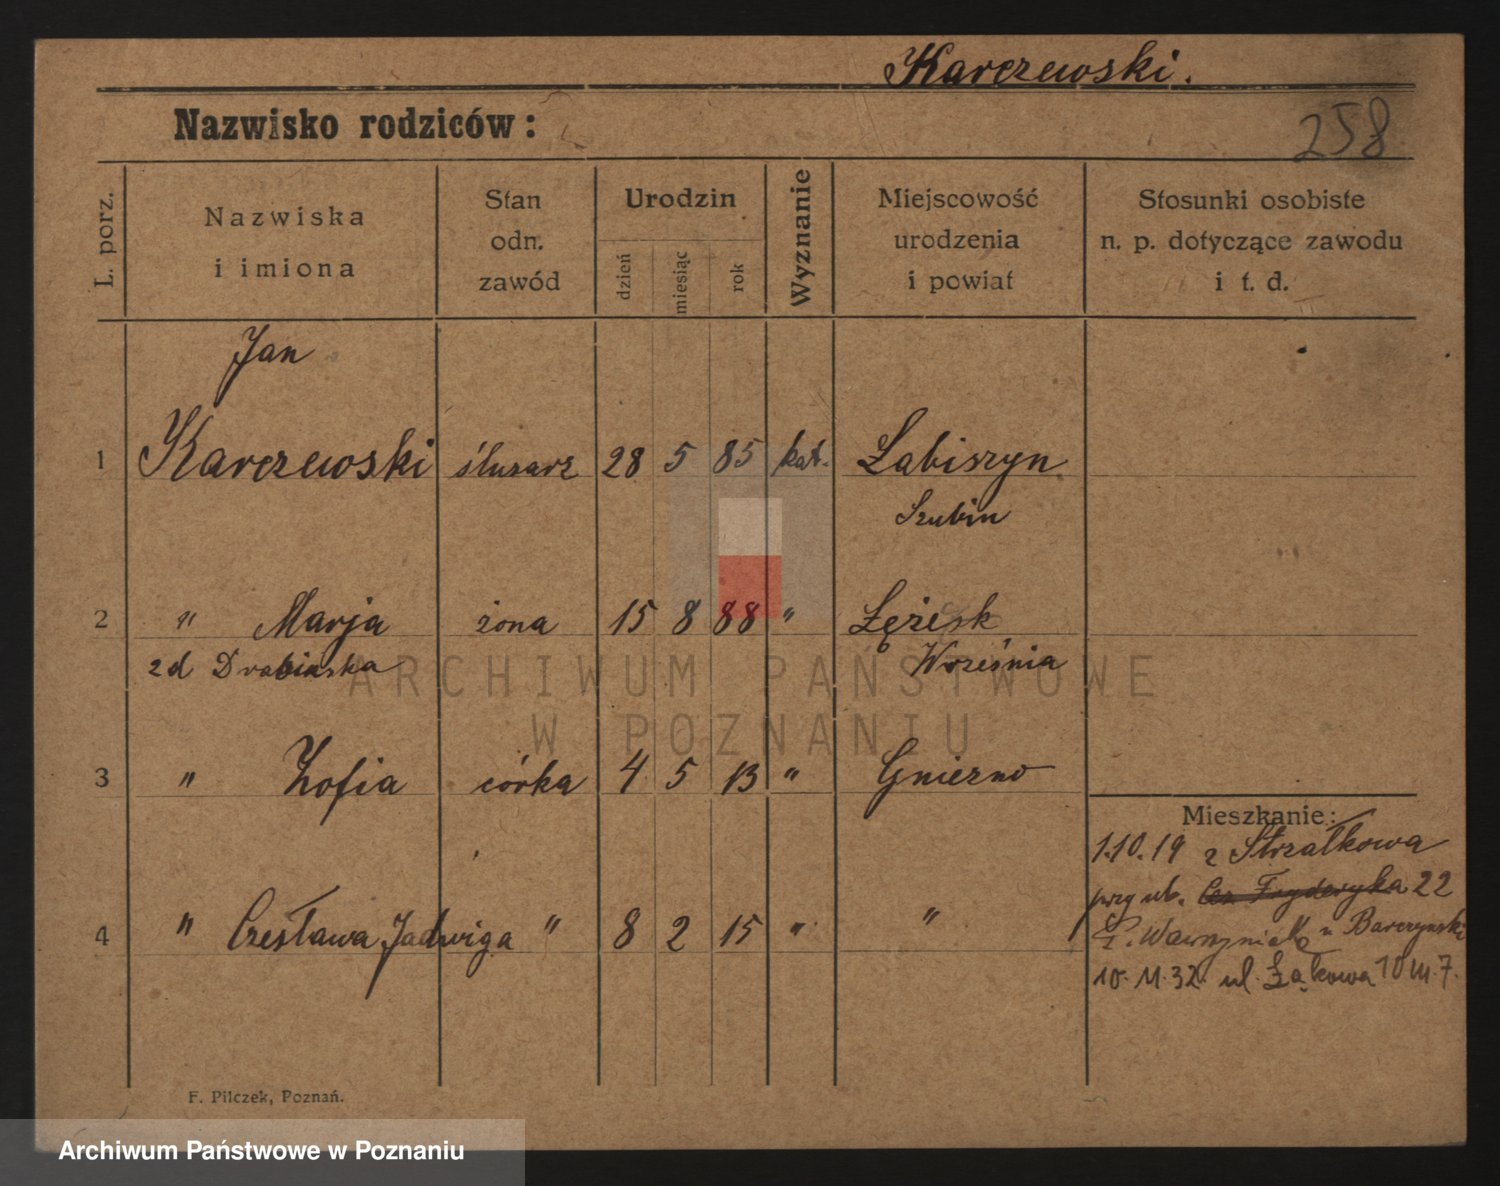 Karczewski.
Nazwisko rodziców:
258
L. porz.
Nazwiska
i imiona
Stan
odn.
zawód
Urodzin
dzień
miesiąc
rok
Wyznanie
Miejscowość
urodzenia
i powiat
Stosunki osobiste
n. p. dotyczące zawodu
i t. d.
Jan
1 Karczewski ślusarz 28 5 85 kat. Łabiszyn
Szubin
2 " Marja żona 15 8 88 "
Września
3 " Zofia córka 4 5 13 " Gniezno
4 " Czesława Jadwiga " 8 2 15 " "
Mieszkanie:
1.10.19 z Strzałkowa
przy ul. Fryderyka 22
Barczynski
10.11.32 ul. Łąkowa 10 m. 7.
F. Pilczek, Poznań.
ARCHIWUM PAŃSTWOWE
W POZNANIU
Archiwum Państwowe w Poznaniu